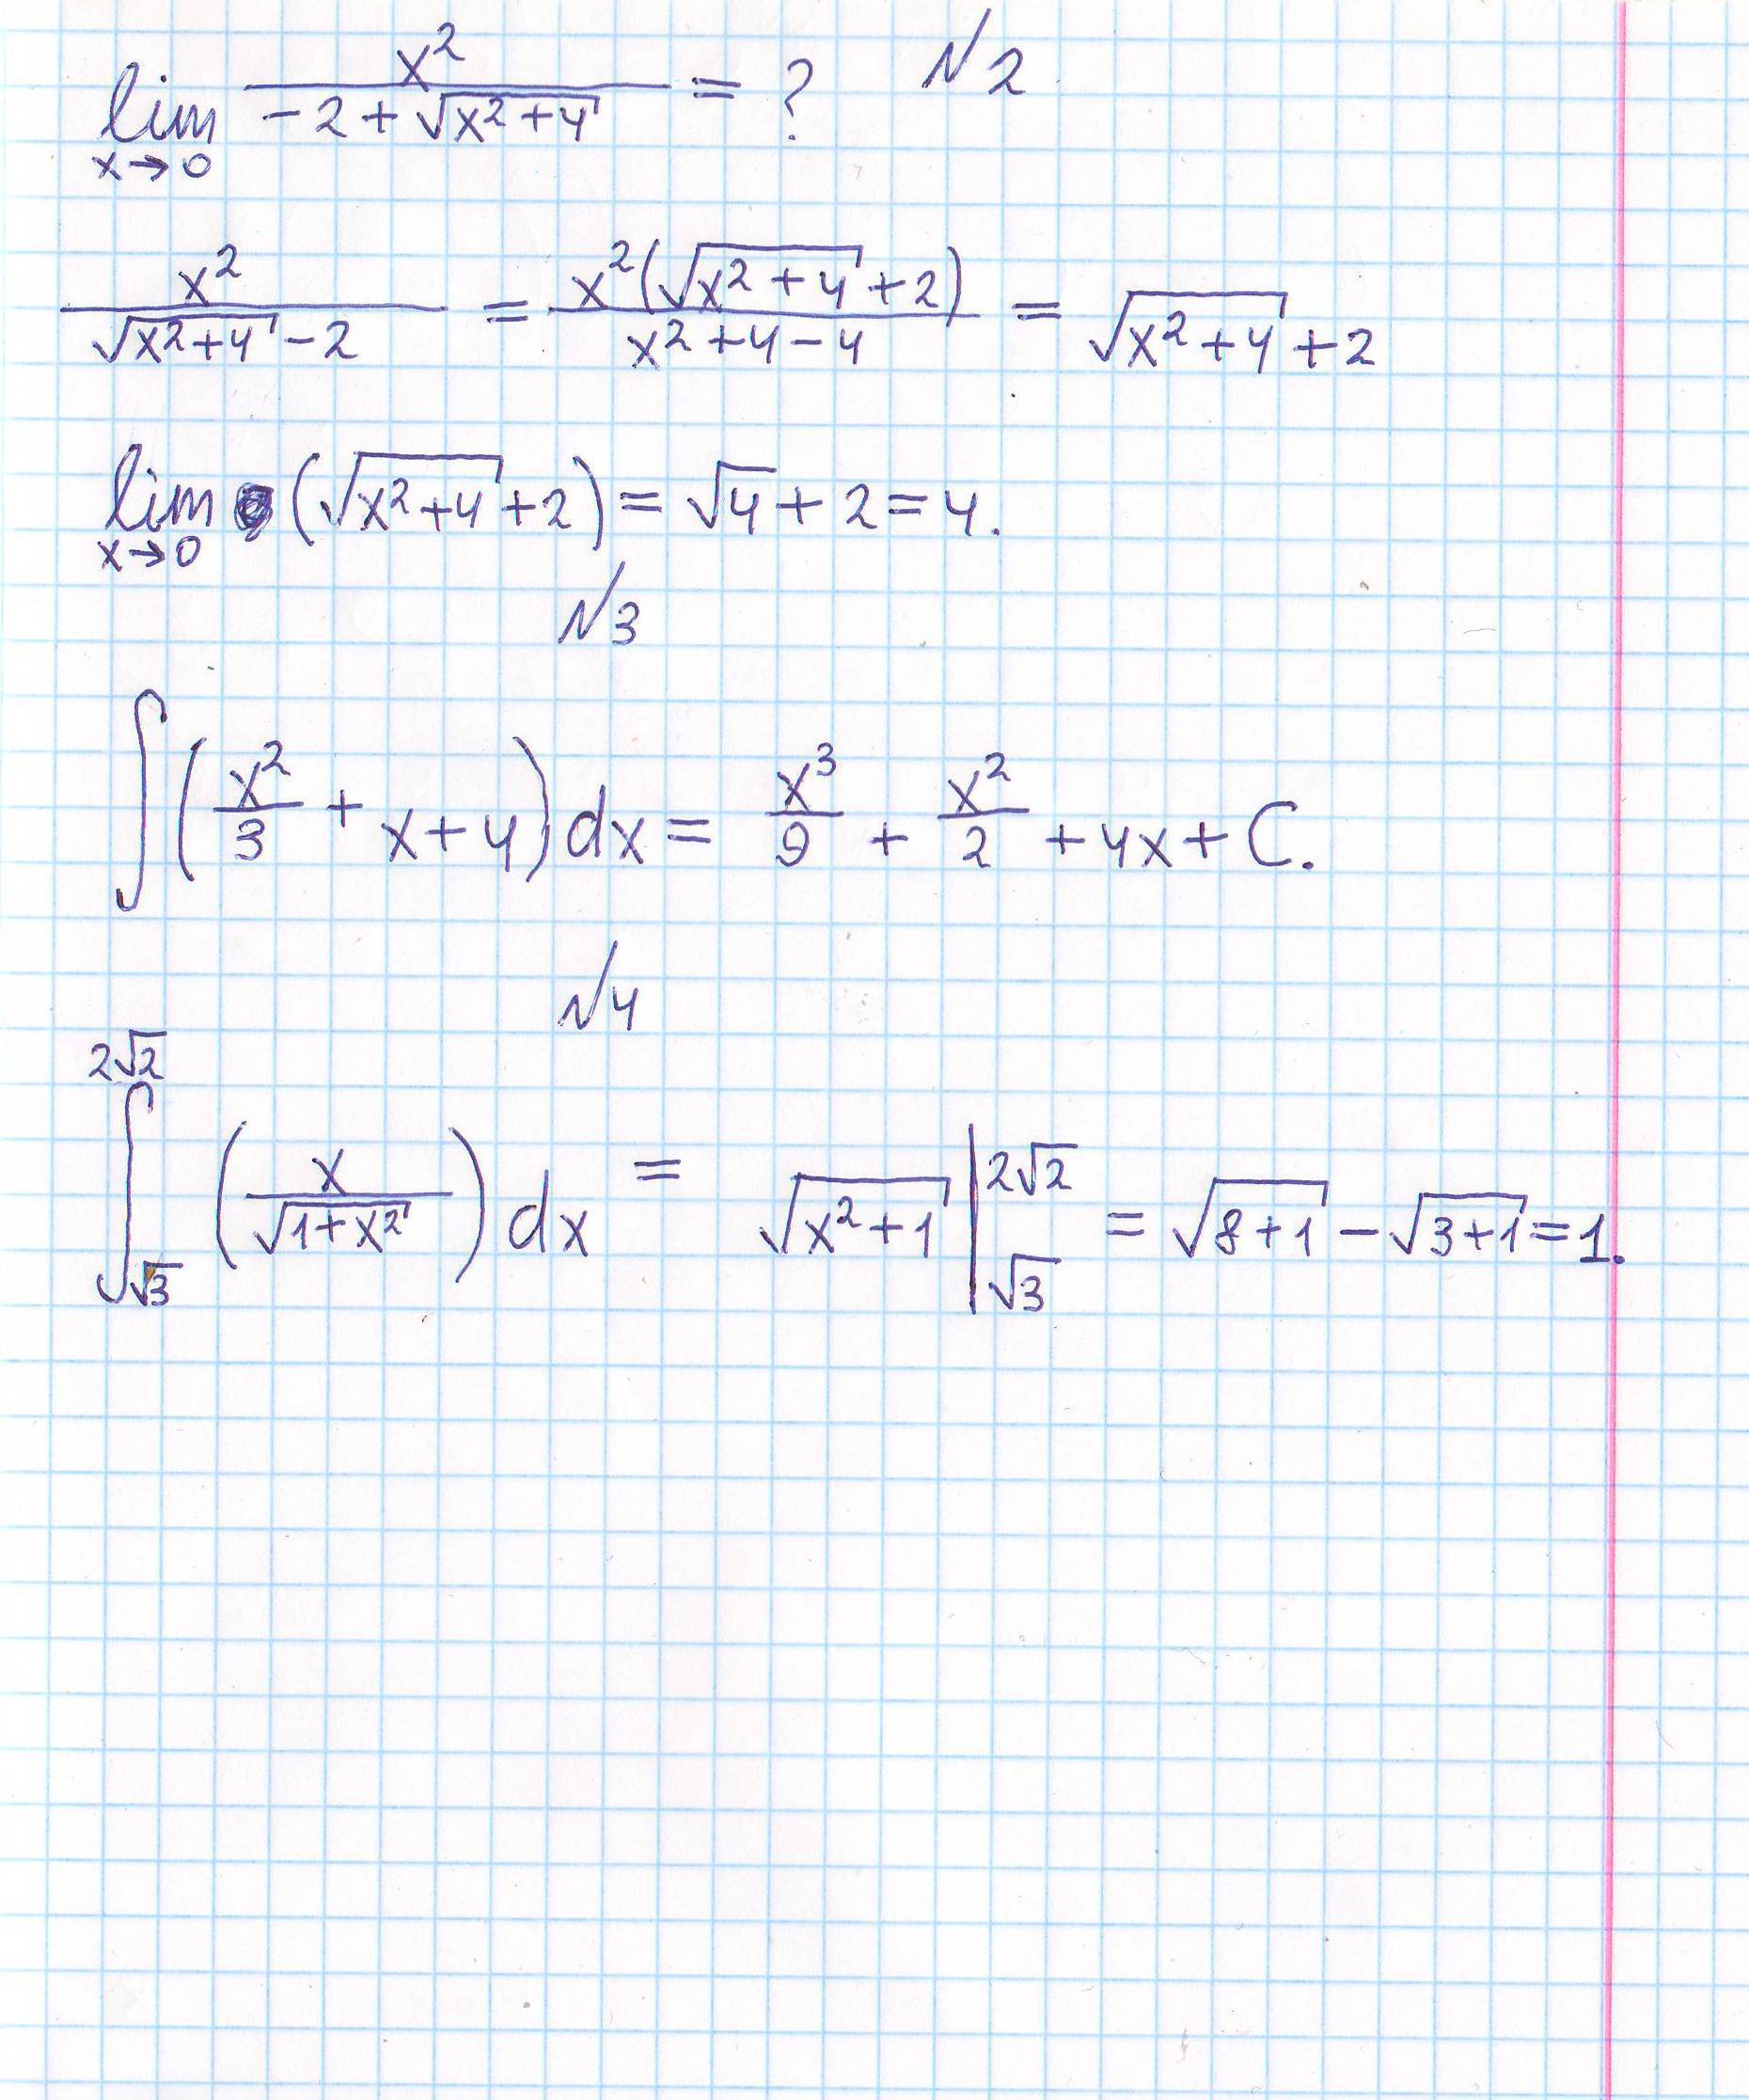 lim x→0 x²/(-2+√(x²+4)) = ? N2
x²/(√(x²+4)-2) = x²(√(x²+4)+2)/(x²+4-4) = √(x²+4)+2
lim x→0 (√(x²+4)+2) = √4+2=4.
N3
∫(x²/3+x+4)dx = x³/9+x²/2+4x+C.
N4
∫_√3^2√2 (x/√(1+x²))dx = √(x²+1)|_√3^2√2 = √(8+1)-√(3+1)=1.